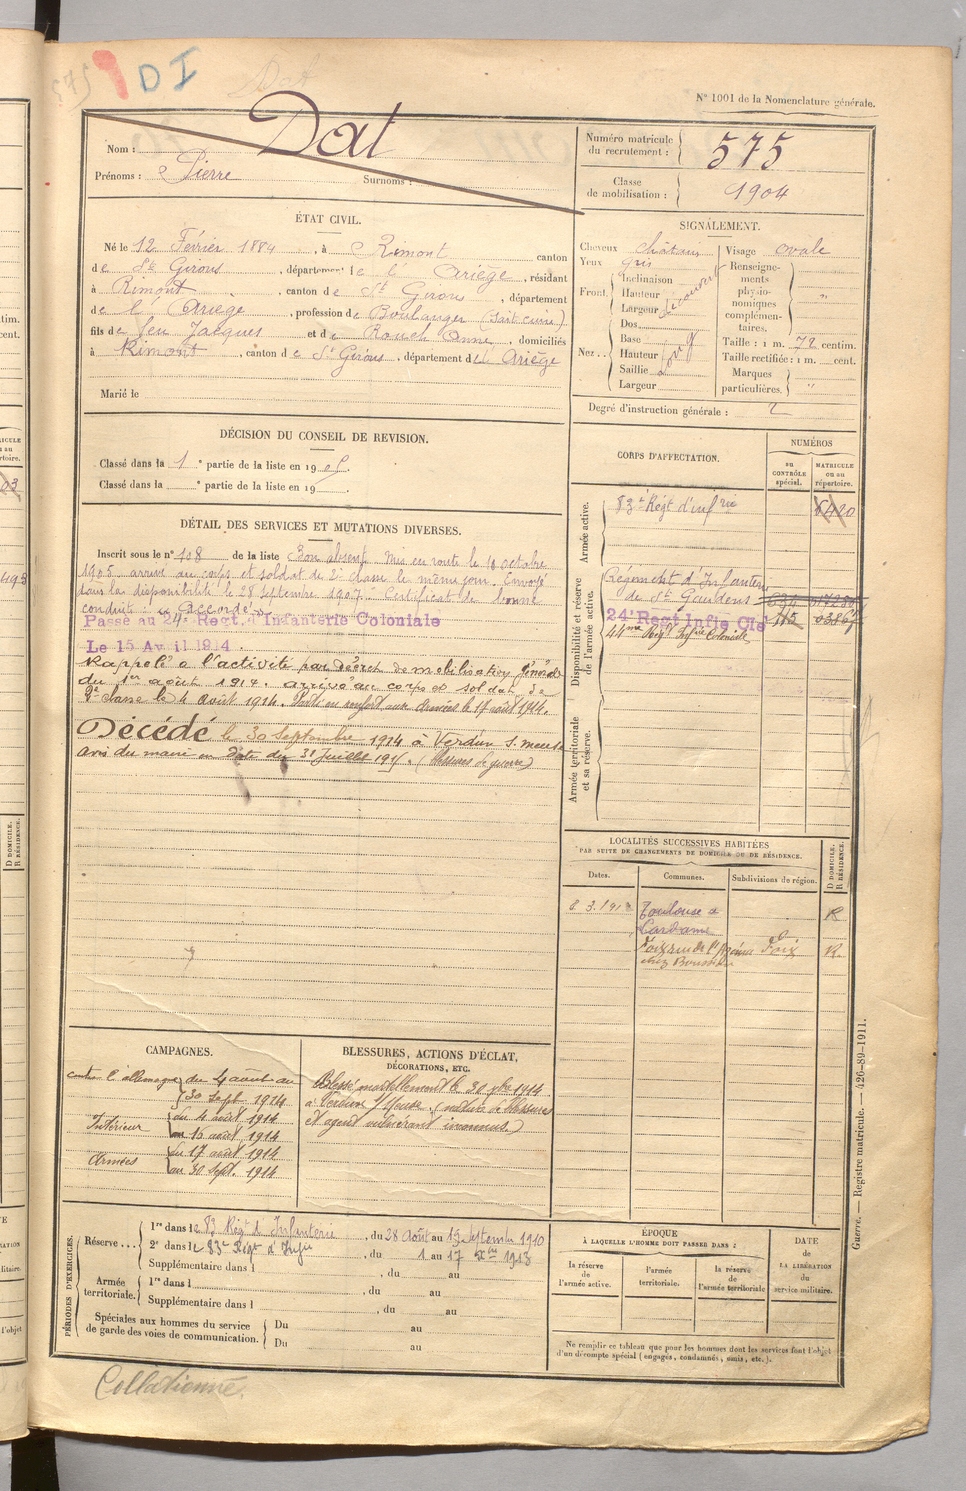 575 DI
Dat
N° 1001 de la Nomenclature générale.
Nom : Dat
Prénoms : Pierre Surnoms :
Numéro matricule du recrutement : 575
Classe de mobilisation : 1904
ÉTAT CIVIL.
Né le 12 Février 1884, à Rimont canton
de St Girons, département de l'Ariège, résidant
à Rimont, canton de St Girons, département
de l'Ariège, profession de Boulanger (Sait cuire)
fils de feu Jacques et de Rouch Anne, domiciliés
à Rimont, canton de St Girons, département de l'Ariège
Marié le
SIGNALEMENT.
Cheveux châtain
Yeux gris
Front. Inclinaison
Hauteur
Largeur découvert
Nez. Dos
Base
Hauteur
Saillie
Largeur
Visage ovale
Renseignements physionomiques complémentaires. "
Taille : 1 m. 72 centim.
Taille rectifiée : 1 m. cent.
Marques particulières. "
Degré d'instruction générale : 2
DÉCISION DU CONSEIL DE REVISION.
Classé dans la 1e partie de la liste en 1905.
Classé dans la e partie de la liste en 19 .
DÉTAIL DES SERVICES ET MUTATIONS DIVERSES.
Inscrit sous le n° 108 de la liste Bon absent. Mis en route le octobre
1905 arrivé au corps et soldat de 2e classe le même jour. Envoyé
dans la disponibilité le 28 septembre 1907. Certificat de bonne
conduite : " Accordé ".
Passé au 24e Regt. d'Infanterie Coloniale
Le 15 Avril 1914.
Rappelé à l'activité par décret de mobilisation générale
du 1er août 1914. arrivé au corps et soldat de
2e classe le 4 août 1914. Parti en renfort aux armées le 17 août 1914.
Décédé le 30 septembre 1914 à Verdun s. meuse
avis du maire en date du 31 juillet (Blessures de guerre)
CORPS D'AFFECTATION.
NUMÉROS
au CONTRÔLE spécial.
MATRICULE ou au répertoire.
Armée active.
83e Régt d'infrie 6420
Disponibilité et réserve de l'armée active.
Régiment d'Infanterie
de St Gaudens
24e Regt Infie Cle
44me Régt Infrie Coloniale
Armée territoriale et sa réserve.
LOCALITÉS SUCCESSIVES HABITÉES
PAR SUITE DE CHANGEMENTS DE DOMICILE OU DE RÉSIDENCE.
Dates. Communes. Subdivisions de région. D DOMICILE. R RÉSIDENCE.
8.3.1913 Toulouse R
Foix Foix R.
CAMPAGNES.
Contre l'allemagne du 4 août au
30 Sept 1914
Intérieur du 4 août 1914
au 16 août 1914
Armées du 17 août 1914
au 30 sept. 1914
BLESSURES, ACTIONS D'ÉCLAT,
DÉCORATIONS, ETC.
Blessé mortellement le 30 7bre 1914
à Verdun s/Meuse. (nature de blessure
et agent vulnérant inconnus.)
PÉRIODES D'EXERCICES.
Réserve... 1re dans le 83e Régt d'Infanterie, du 28 Août au 13 Septembre 1910
2e dans le 83e Régt d'Infie, du 1 au 17 Xbre 1913
Supplémentaire dans l , du au
Armée territoriale. 1re dans l , du au
Supplémentaire dans l , du au
Spéciales aux hommes du service de garde des voies de communication. Du au
Du au
ÉPOQUE
À LAQUELLE L'HOMME DOIT PASSER DANS :
la réserve de l'armée active.
l'armée territoriale.
la réserve de l'armée territoriale
DATE de LA LIBÉRATION du service militaire.
Ne remplir ce tableau que pour les hommes dont les services font l'objet
d'un décompte spécial (engagés, condamnés, omis, etc.).
Guerre. — Registre matricule. — 426-89-1911.
Collationné.